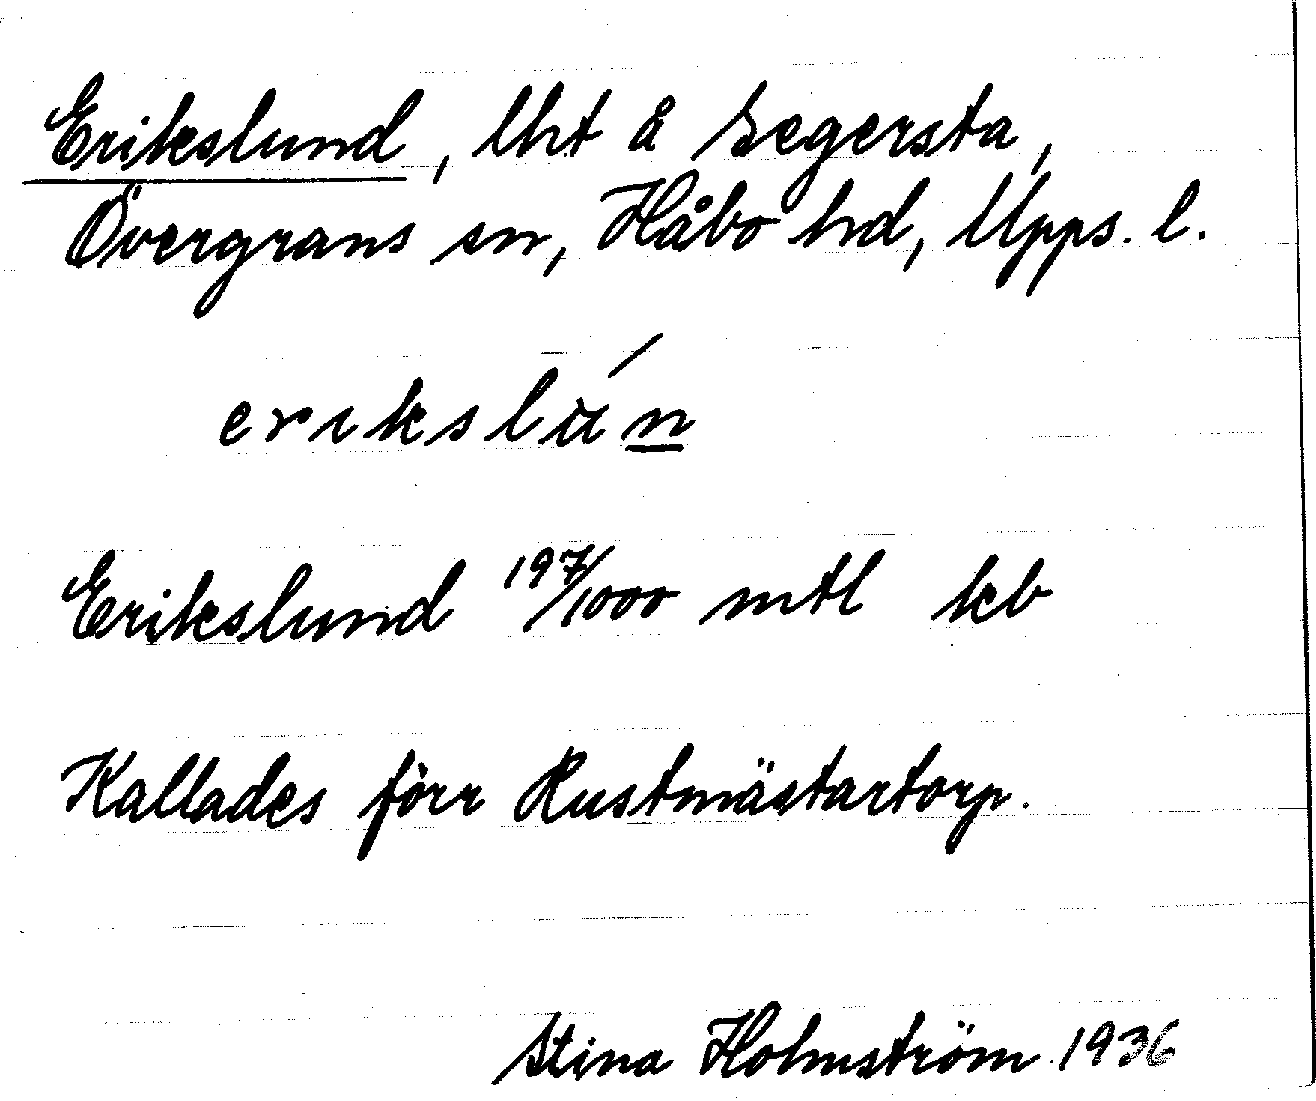 Erikslund, lht å Segersta,
Övergrans sn, Håbo hd, Upps. l.
erɩkslún
Erikslund 197/1000 mtl kb
Kallades förr Rustmästartorp.
Stina Holmström 1936